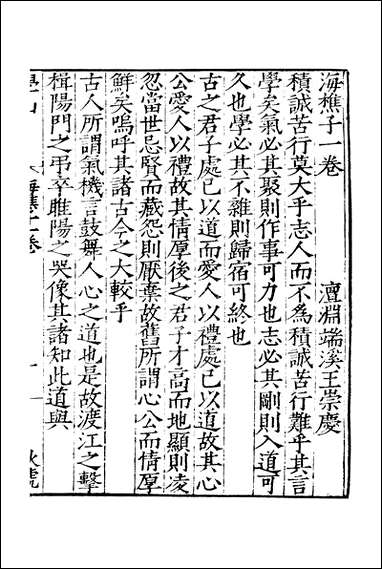 海樵子一卷　澶淵端溪王崇慶
積誠苦行莫大乎志人而不為積誠苦行難乎其言
學矣氣必其聚則作事可力也志必其剛則入道可
久也學必其不雜則歸宿可終也
古之君子處己以道而愛人以禮處己以道故其心
公愛人以禮故其情厚後之君子才高而地顯則凌
忽當世忌賢而藏怨則厭棄故舊所謂心公而情厚
鮮矣嗚呼其諸古今之大較乎
古人所謂氣機言鼓舞人心之道也是故渡江之擊
楫陽門之弔卒睢陽之哭像其諸知此道與
海樵子卷
一